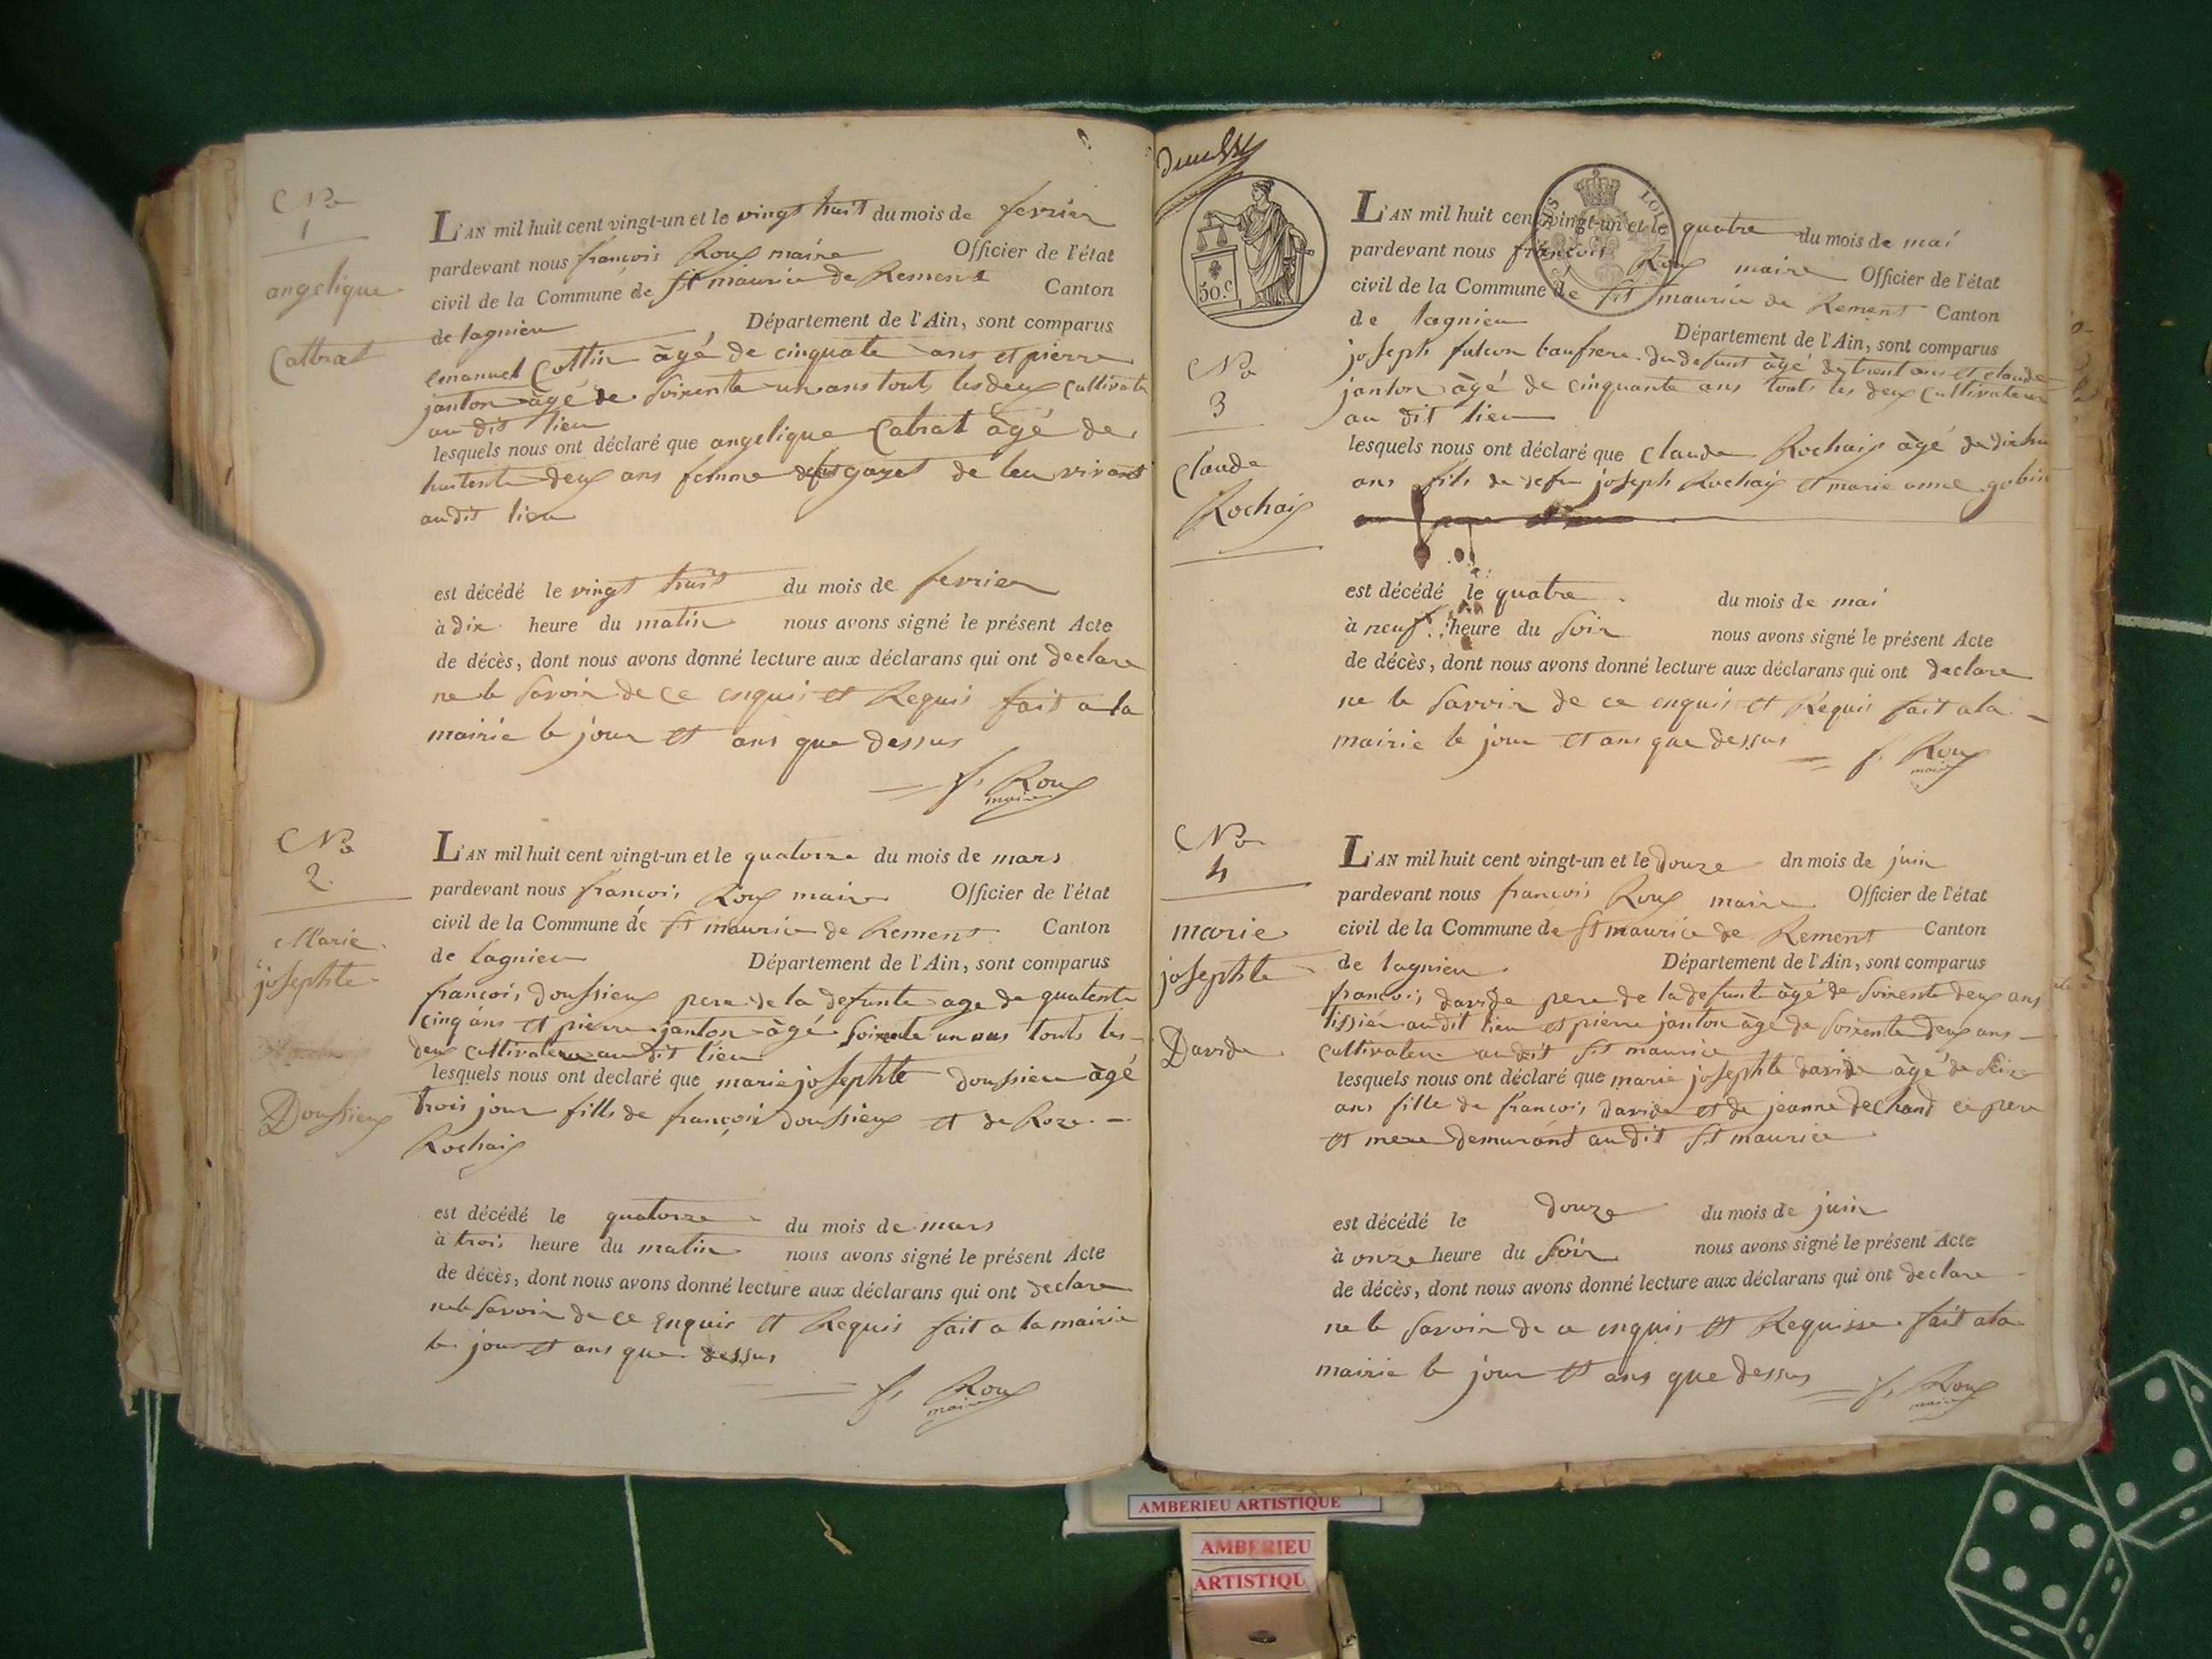 No
1
angelique
Cattrat
L'AN mil huit cent vingt-un et le vingt huit du mois de fevrier
pardevant nous françois Roux maire Officier de l'état
civil de la Commune de St maurice de Remens Canton
de lagnieu Département de l'Ain, sont comparus
emanuel Cottin âgé de cinquate ans et pierre
janton âgé de soixente un ans touts les deux Cultivate
au dit lieu
lesquels nous ont déclaré que angelique Catrat âgé de
huitente deux ans femme gayet de leu vivant
au dit lieu
est décédé le vingt huit du mois de fevrier
à dix heure du matin nous avons signé le présent Acte
de décès, dont nous avons donné lecture aux déclarans qui ont declare
ne le savoir de ce enquis et Requis fait a la
mairie le jour et ans que dessus
f. Roux
maire
No
2
Marie
josephte
Doussieux
L'AN mil huit cent vingt-un et le quatorze du mois de mars
pardevant nous françois Roux maire Officier de l'état
civil de la Commune de St maurice de Remens Canton
de lagnieu Département de l'Ain, sont comparus
françois doussieux pere de la defunte age de quatente
cinq ans et pierre janton âgé soixente un ans touts les
deux cultivateur au dit lieu
lesquels nous ont declaré que marie josephte doussieu âgé
trois jour fille de françois doussieux et de Roze
Rochaix
est décédé le quatorze du mois de mars
à trois heure du matin nous avons signé le présent Acte
de décès, dont nous avons donné lecture aux déclarans qui ont declare
ne le savoir de ce enquis et Requis fait a la mairie
le jour et ans que dessus
f. Roux
maire
50.c
No
3
Claude
Rochaix
L'AN mil huit cent vingt-un et le quatre du mois de mai
pardevant nous françois Roux maire Officier de l'état
civil de la Commune de St maurice de Remens Canton
de lagnieu Département de l'Ain, sont comparus
joseph fulcon baufrere du defunt âgé de trent ans et claude
janton âgé de cinquante ans touts les deux Cultivateur
au dit lieu
lesquels nous ont déclaré que Claude Rochaix âgé de dix hu
ans fils de defu joseph Rochaix et marie gobin
est décédé le quatre du mois de mai
à neuf heure du soir nous avons signé le présent Acte
de décès, dont nous avons donné lecture aux déclarans qui ont declare
ne le savoir de ce enquis et Requis fait a la
mairie le jour et ans que dessus
f. Roux
maire
No
4
marie
josephte
Davide
L'AN mil huit cent vingt-un et le douze dn mois de juin
pardevant nous françois Roux maire Officier de l'état
civil de la Commune de St maurice de Remens Canton
de lagnieu Département de l'Ain, sont comparus
françois davide pere de la defunte âgé de soixente deux ans
tissier au dit lieu et pierre janton âgé de soixente deux ans
cultivateur au dit St maurice
lesquels nous ont déclaré que marie josephte davide âgé de seize
ans fille de françois davide et de jeanne dechand ce pere
et mere demurant au dit St maurice
est décédé le douze du mois de juin
à onze heure du soir nous avons signé le présent Acte
de décès, dont nous avons donné lecture aux déclarans qui ont declare
ne le savoir de ce enquis et Requisse fait a la
mairie le jour et ans que dessus
f. Roux
maire
AMBERIEU ARTISTIQUE
AMBERIEU
ARTISTIQU